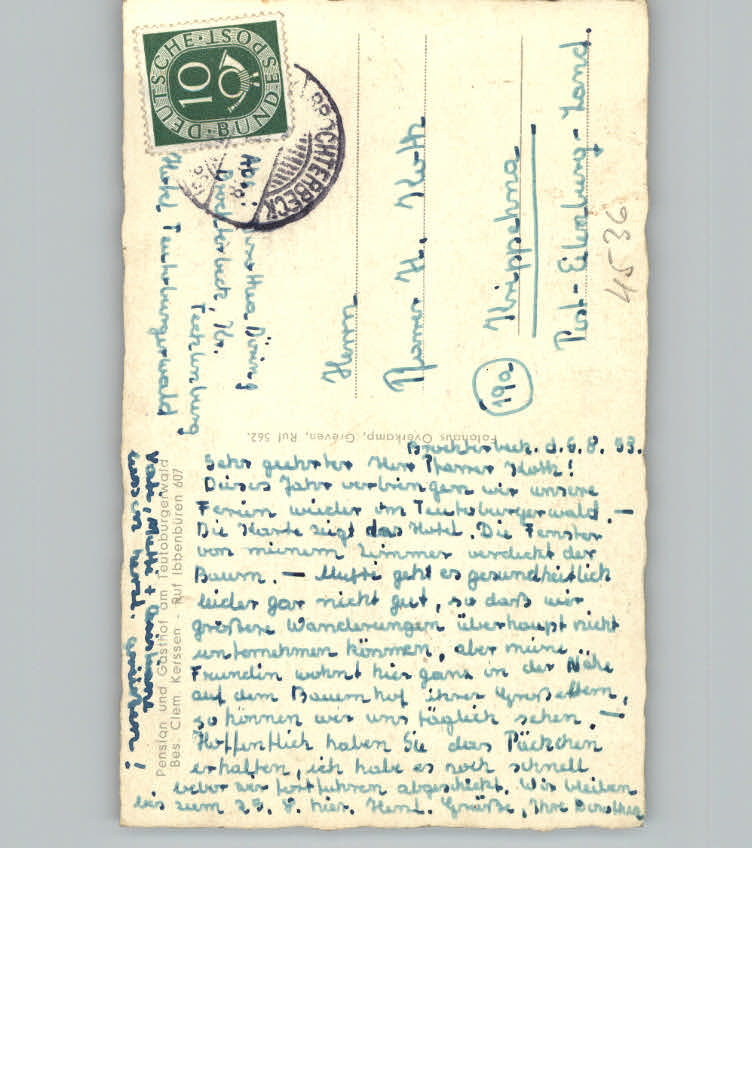 Brochterbeck. d. 6. 8. 53.
Sehr geehrter Herr Pfarrer Koth!
Dieses Jahr verbringen wir unsere
Ferien wieder im Teutoburgerwald. —
Die Karte zeigt das Hotel. Die Fenster
von meinem Zimmer verdeckt der
Baum. — Mutti geht es gesundheitlich
leider gar nicht gut, so daß wir
größere Wanderungen überhaupt nicht
unternehmen können, aber meine
Freundin wohnt hier ganz in der Nähe
auf dem Bauernhof ihrer Großeltern,
so können wir uns täglich sehen. !
Hoffentlich haben Sie das Päckchen
erhalten, ich habe es noch schnell
bevor wir fortfuhren abgeschickt. Wir bleiben
bis zum 25. 8. hier. Herzl. Grüße, Ihre Dorothea
Vati, Mutti +
lassen herzl. grüßen!
Pension und Gasthof am Teutoburgerwald
Bes. Clem Kerssen - Ruf Ibbenbüren 607
Fotohaus Overkamp, Greven, Ruf 562.
DEUTSCHE BUNDESPOST
10
BROCHTERBECK
Abs.: Dorothea
Brochterbeck, Kr.
Tecklenburg
Hotel Teutoburgerwald
Herrn
Pfarrer H. Koth
(19a) Krippehna
Post-Eilenburg-Land
4536